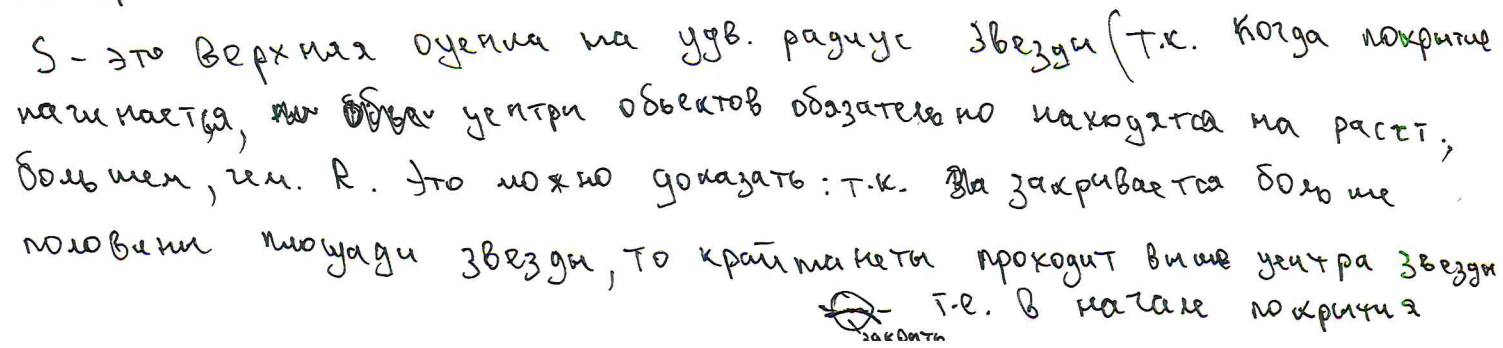 S - это верхняя оценка на удв. радиус звезды (т.к. когда покрытие
начинается, центры объектов обязательно находятся на расст.,
большем, чем. R. Это можно доказать: т.к. закрывается больше
половины площади звезды, то край планеты проходит выше центра звезды
т.е. в начале покрытия
закрыть